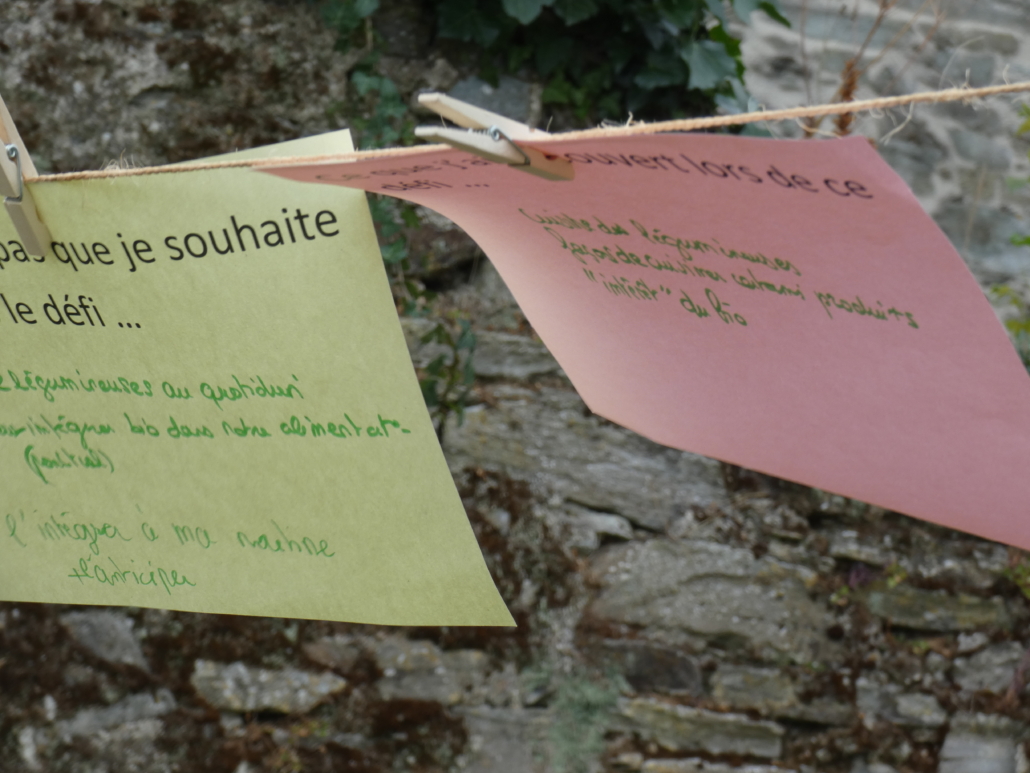 pas que je souhaite
le défi ...
légumineuses au quotidien
intégrer bio dans notre alimentat°
l'intégrer à ma routine
+ l'anticiper
Ce que j'ai découvert lors de ce
défi ...
cuisine des légumineuses
façons de cuisiner certains produits
"intérêt" du bio